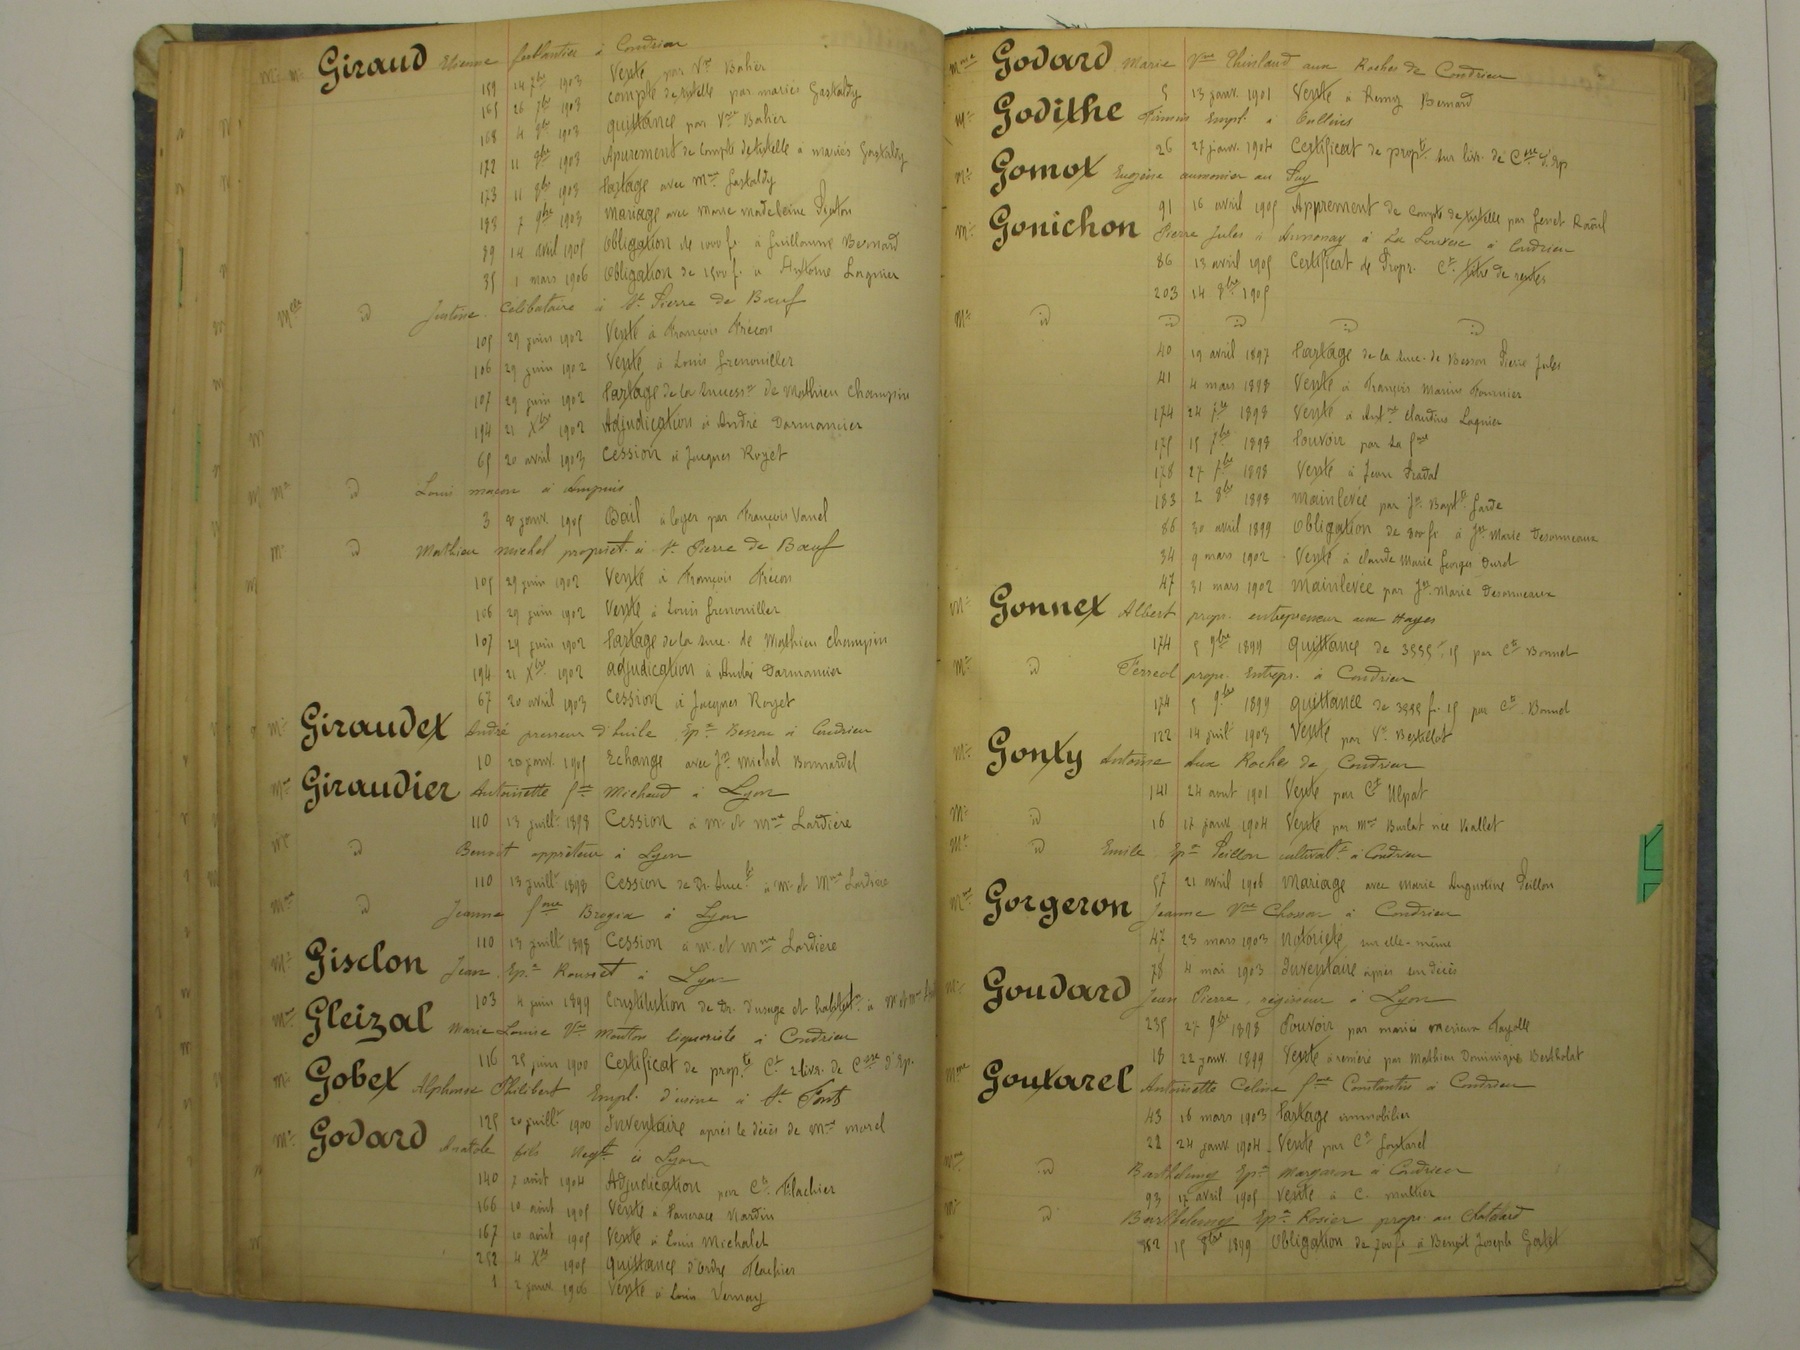 Mr Giraud Etienne ferblantier à Condrieu
159 14 7bre 1903 Vente par Vve Bahier
165 26 7bre 1903 Compte de tutelle par mariés Gastaldy
168 4 8bre 1903 quittance par Vve Bahier
172 11 8bre 1903 Apurement de Compte de tutelle à mariés Gastaldy
173 11 8bre 1903 Partage avec Mme Gastaldy
183 7 9bre 1903 Mariage avec Marie Madeleine
89 14 avril 1905 Obligation de 1000 fr. à Guillaume Bernard
35 1 mars 1906 Obligation de 1500 f. à Antoine Lagnier
Melle id Justine Célibataire à St Pierre de Bœuf
105 29 juin 1902 Vente à François Frécon
106 29 juin 1902 Vente à Louis Grenouiller
107 29 juin 1902 Partage de la Success. de Mathieu Champin
194 21 Xbre 1902 Adjudication à André Darmancier
65 20 avril 1903 Cession à Jacques Royet
Mr id Louis maçon à Ampuis
3 8 janv. 1905 Bail à loyer par François Vanel
Mr id Mathieu Michel propriét. à St Pierre de Bœuf
105 29 juin 1902 Vente à François Frécon
106 29 juin 1902 Vente à Louis Grenouiller
107 29 juin 1902 Partage de la Succ. de Mathieu Champin
194 21 Xbre 1902 adjudication à André Darmancier
67 20 avril 1903 Cession à Jacques Royet
Mr Giraudet André presseur d'huile Epx Besson à Condrieu
10 20 janv. 1905 Echange avec Jn Michel Bonnardel
Mme Giraudier Antoinette fme Michaud à Lyon
110 13 juillt 1898 Cession à Mr et Mme Lardière
Mr id Benoit apprêteur à Lyon
110 13 juillt 1898 Cession de Dr. Succ. à Mr et Mme Lardière
Mme id Jeanne fme Brogia à Lyon
110 13 juillt 1898 Cession à Mr et Mme Lardière
Mr Gisclon Jean Epx Rousset à Lyon
103 4 juin 1899 Constitution de Dr. d'usage et habitat. à Mr et Mme
Mme Gleizal Marie Louise Vve Mouton liquoriste à Condrieu
116 28 juin 1900 Certificat de prop.té Ct 2 livr. de Csse d'Ep.
Mr Gobet Alphonse Philibert Empl. d'usine à St Fons
125 20 juillt 1900 Inventaire après le décès de Mme Morel
Mr Godard Anatole fils Negt à Lyon
140 7 août 1904 Adjudication par Ct. Flachier
166 10 août 1905 Vente à Pancrace Nardin
167 10 août 1905 Vente à Louis Michalet
252 4 Xbre 1905 quittance d'ordre Flachier
1 2 janv. 1906 Vente à Louis Vernay
Mme Godard Marie Vve Thinlaud aux Roches de Condrieu
5 13 janv. 1901 Vente à Remy Bernard
Mr Godithe Firmin Empl. à Cullins
26 27 janv. 1904 Certificat de propté sur livr. de Csse d'Ep
Mr Gomot Eugène aumonier au Puy
91 16 avril 1905 Apprement de Compte de tutelle par Genet Raoul
Mr Gonichon Pierre Jules à Annonay à La Louvesc à Condrieu
86 13 avril 1905 Certificat de Propr. Ct. titre de rentes
203 14 8bre 1905
Mr id id id id id
40 19 avril 1897 Partage de la succ. de Besson Pierre Jules
41 4 mars 1898 Vente à François Marius Fournier
174 24 7bre 1898 Vente à Antne Claudius Lagnier
175 15 7bre 1898 Pouvoir par sa fme
178 27 7bre 1898 Vente à Jean Pradal
183 2 8bre 1898 Mainlevée par Jn Bapte Garde
86 30 avril 1899 Obligation de 800 fr. à Jn Marie Desonneaux
34 9 mars 1902 Vente à Claude Marie Georges Duret
47 31 mars 1902 Mainlevée par Jn Marie Desonneaux
Mr Gonnet Albert propr. entrepreneur aux Hayes
174 5 9bre 1899 quittance de 3555 f. 15 par Ct Bonnet
Mr id Ferréol propr. Entrepr. à Condrieu
174 5 9bre 1899 quittance de 3555 f. 15 par Ct. Bonnet
122 14 juil 1903 Vente par Vve Bestillot
Mr Gonty Antoine aux Roches de Condrieu
141 24 aout 1901 Vente par Ct Ulpat
Mr id 16 17 janv. 1904 Vente par Mme Burlat née Viallet
Mr id Emile Epx Peillon cultivat. à Condrieu
57 21 avril 1906 Mariage avec Marie Augustine Peillon
Mme Gorgeron Jeanne Vve Chossar à Condrieu
47 23 mars 1903 Notoriété sur elle-même
78 4 mai 1903 Inventaire après son décès
Mr Goudard Jean Pierre, régisseur à Lyon
235 27 9bre 1898 Pouvoir par mariés Fayolle
18 22 janv. 1899 Vente à réméré par Mathieu Dominique Bertholat
Mme Goutarel Antoinette Celine fme Constantin à Condrieu
43 16 mars 1903 Partage immobilier
22 24 janv 1904 Vente par Ct Goutarel
id Barthélemy Epx Margaron à Condrieu
93 17 avril 1905 Vente à C. Mullier
Mr id Barthelemy Epx Rosier propr. au Chatelard
162 15 8bre 1899 Obligation de 700 fr. à Benoît Joseph Gatet